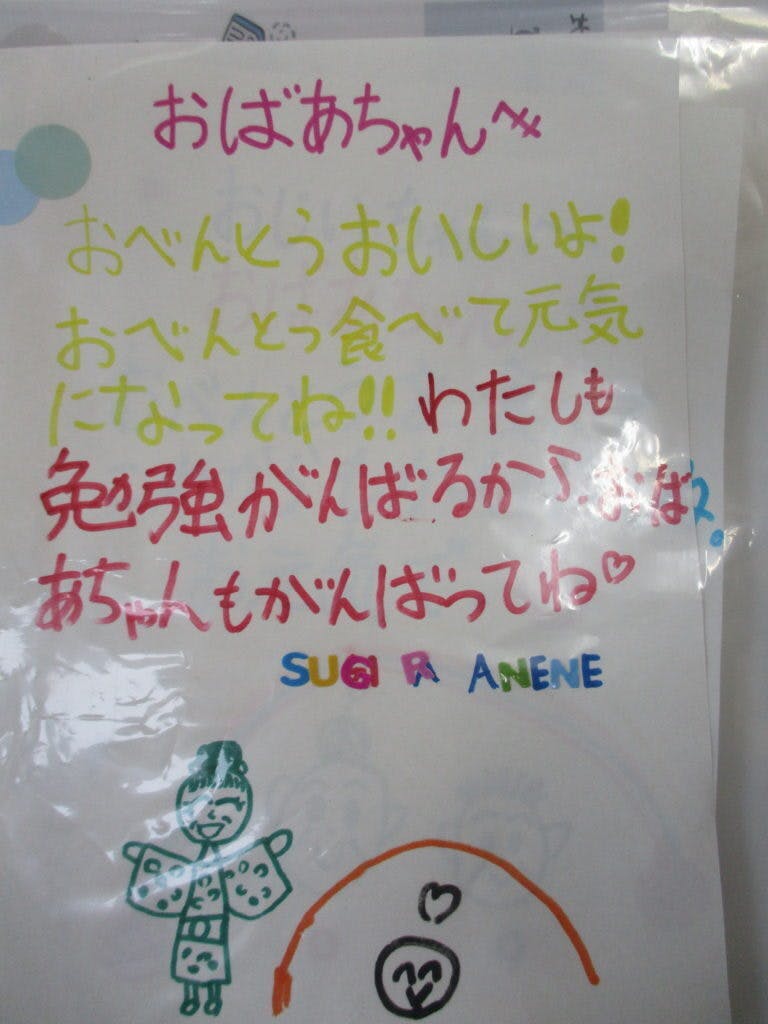 おばあちゃんへ
おべんとうおいしいよ!
おべんとう食べて元気
になってね!! わたしも
勉強がんばるから、おば
あちゃんもがんばってね♡
ANENE